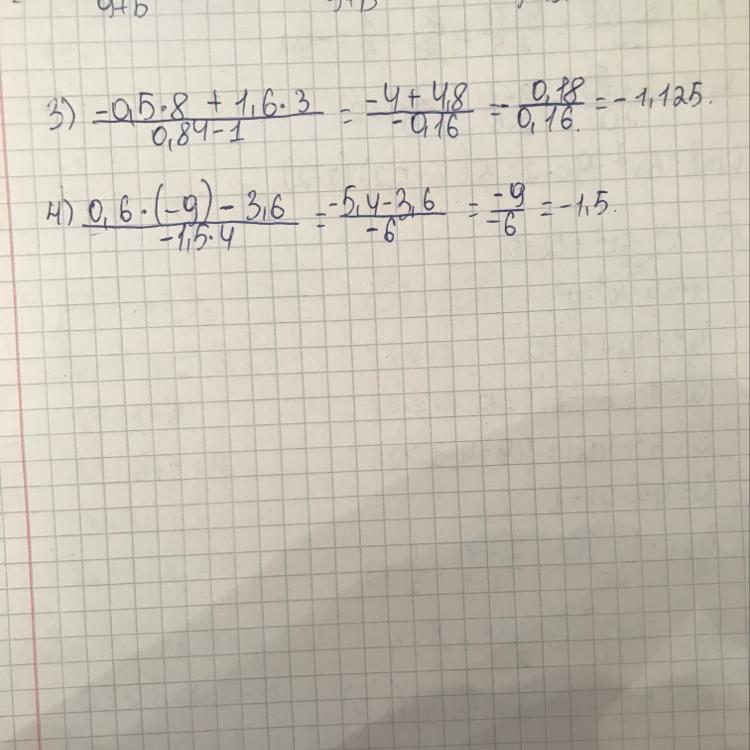 3) -0,5·8 + 1,6·3 / 0,84-1 = -4+4,8 / -0,16 = - 0,18 / 0,16. = -1,125.
4) 0,6·(-9) - 3,6 / -1,5·4 = -5,4-3,6 / -6 = -9 / -6 = -1,5.